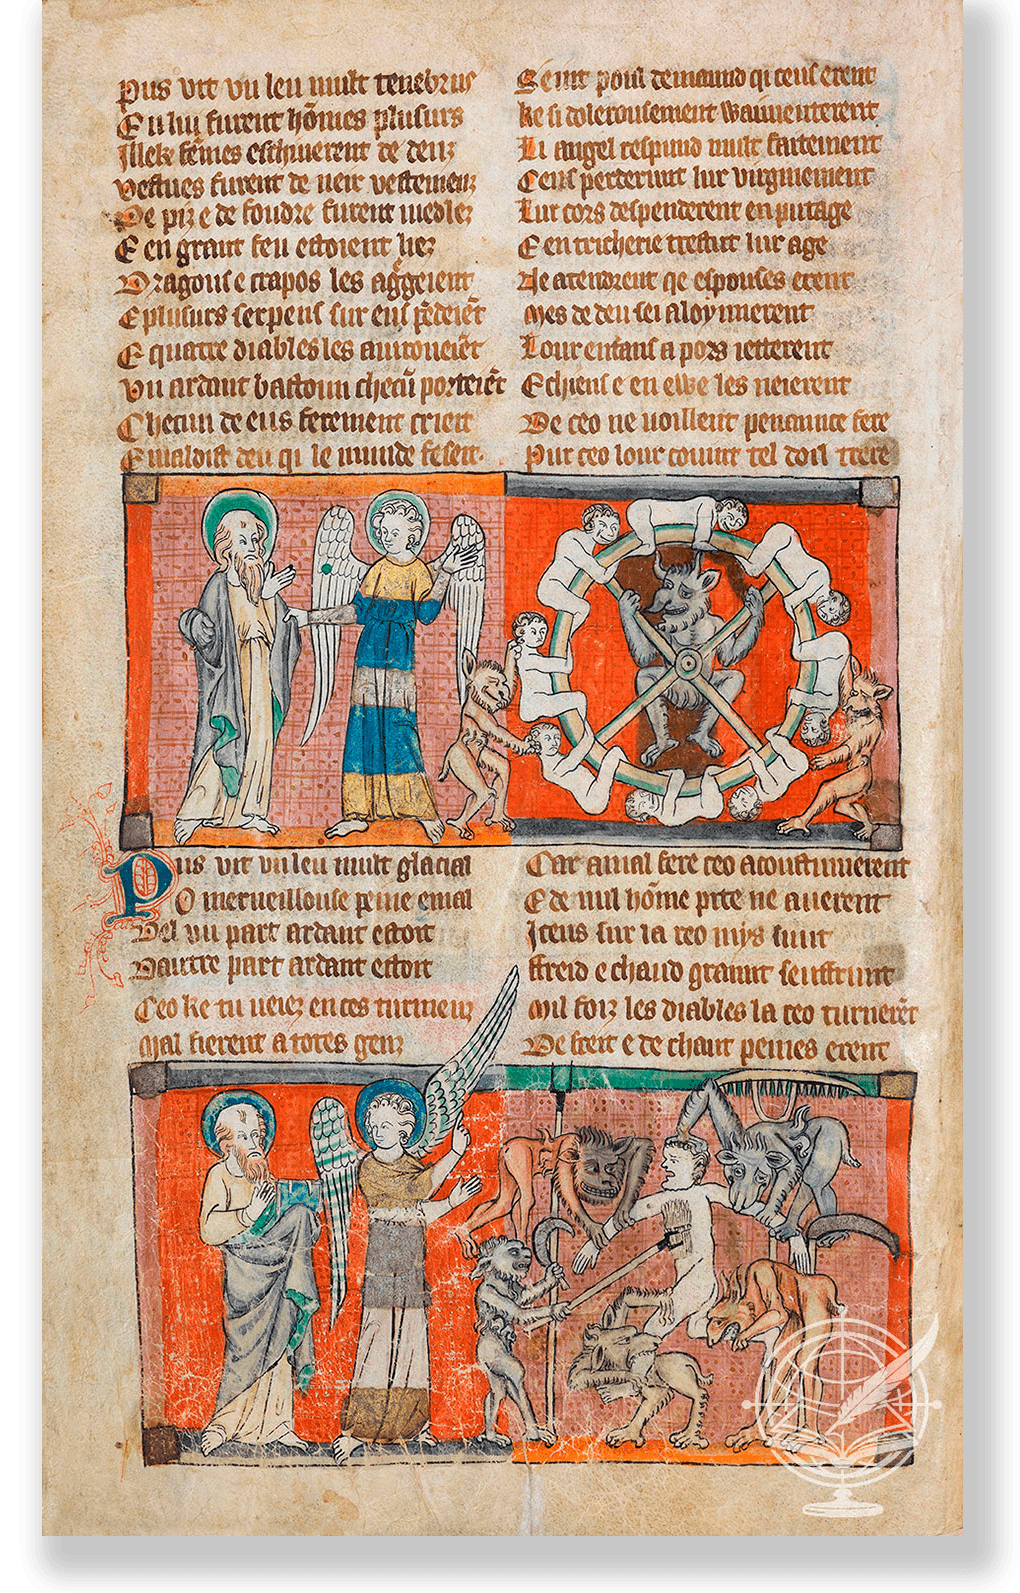 Pus vit vn leu mult tenebrus
En lui furent hōmes plusurs
Illeke fēmes eschiuerent de deuz
vestues furent de neir vestemenz
De piz e de foudre furent medlez
E en grant feu estoient liez
Dragons e crapos les aggeient
E plusurs serpens sur eus pēdeiēt
E quatre diables les auironeiēt
Vn ardant bastoun checū porteiēt
Checun de eus ferement crieit
E maldist deu qi le munde feseit.
Seint poul demaund qi ceus erent
Ke si dolerousement waimenterent
Li angel respund mult fartement
Ceus perdirunt lur virginement
Lur cors despenderent en putage
E en tricherie trestut lur age
Ne atendrent qe espouses erent
Mes de deu sei aloynnerent
Lour enfans a pors ietterent
E chiens e en ewe les neierent
De ceo ne voillent penance fere
Pur ceo lour couint tel doil trere
Pus vit vn leu mult glacial
O merueillouse peine e mal
Del vn part ardant estoit
Dautre part ardant estoit
Ceo ke tu veiez en ces turmenz
Mal fierent a totes genz
Car a mal fere ceo acoustumerent
E de nul hōme pite ne auerent
Iceus sur la ceo mys sunt
ffreid e chaud grannt seuffrunt
Mil foiz les diables la ceo turnerēt
De freit e de chaut peines erent